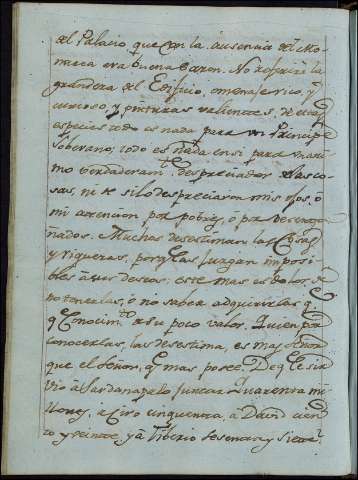 del Palacio que con la ausencia del Mo-
narca era buena razon. No referire la
grandeza del Edificio, omenaje rico, y
curioso, y pinturas valientes, de
especies todo es nada para un Principe
Soberano; todo es nada en si para mas
mo verdaderam.te despreciador de las co-
sas, ni se si lo despreciaron mis ojos, o
mi atencion por pobre, o por desenga-
ñados. Muchos desestiman las Cosas
y riquezas, porq las juzgan imposi-
bles à sus deseos, este mas es dolor, de
no tenerlas, o no saber adquirirlas q.
q Conocim.to de su poco valor. Quien por
conocerlas, las desestima, es mas señor
que el señor, q mas posee. De q le sir-
vio à Sardanapalo juntar quarenta mi-
llones, a Ciro cinquenta, à David cien-
to y veinte, y à Tiberio sesenta y siete?